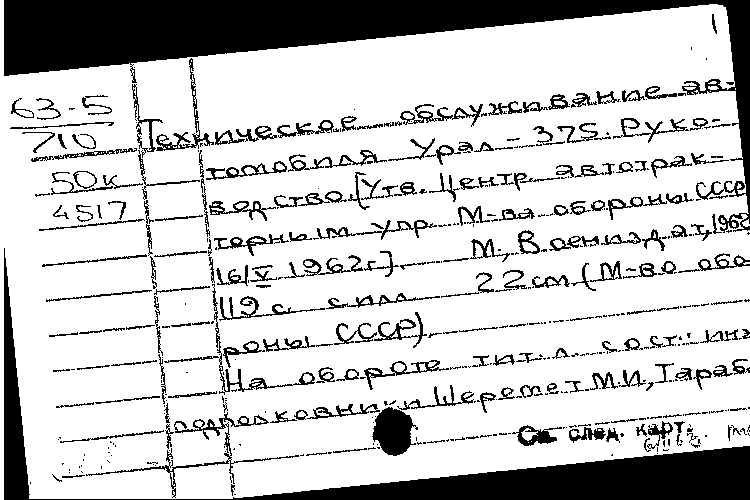 1
63-5
710
50к
4517
Техническое обслуживание ав-
томобиля Урал-375. Руко-
водство. [Утв. Центр. автотрак-
торным упр. М-ва обороны СССР
16/V 1962г.]. М., Воениздат, 1962
119 с. с илл. 22 см. (М-во обо-
роны СССР).
На обороте тит. л. сост.: инж
подполковники Шеремет М.И., Тараб
См. след. карт.